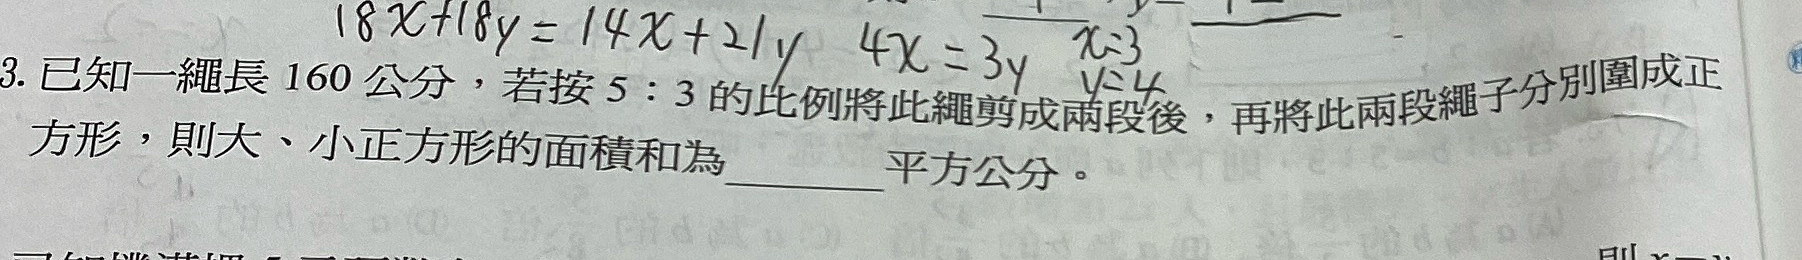 18x+18y=14x+21y 4x=3y x=3
y=4
3. 已知一繩長 160 公分，若按 5：3 的比例將此繩剪成兩段後，再將此兩段繩子分別圍成正
方形，則大、小正方形的面積和為______平方公分。